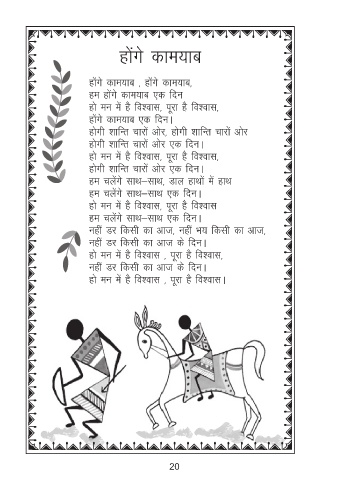 होंगे कामयाब
होंगे कामयाब , होंगे कामयाब,
हम होंगे कामयाब एक दिन
हो मन में है विश्वास, पूरा है विश्वास,
होंगे कामयाब एक दिन।
होगी शान्ति चारों ओर, होगी शान्ति चारों ओर
होगी शान्ति चारों ओर एक दिन।
हो मन में है विश्वास, पूरा है विश्वास,
होगी शान्ति चारों ओर एक दिन।
हम चलेंगे साथ–साथ, डाल हाथों में हाथ
हम चलेंगे साथ–साथ एक दिन।
हो मन में है विश्वास, पूरा है विश्वास
हम चलेंगे साथ–साथ एक दिन।
नहीं डर किसी का आज, नहीं भय किसी का आज,
नहीं डर किसी का आज के दिन।
हो मन में है विश्वास , पूरा है विश्वास,
नहीं डर किसी का आज के दिन।
हो मन में है विश्वास , पूरा है विश्वास।
20